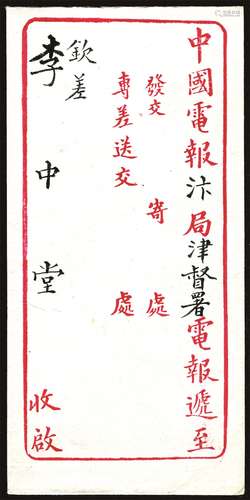 中國電報汴局津督署電報遞至
發交 寄 處
專差送交 處
欽差
李中堂 收啟